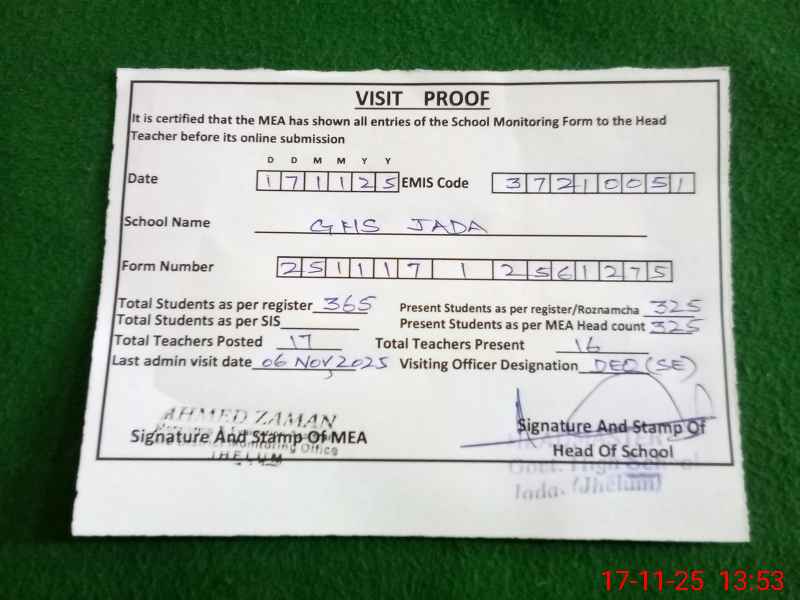 VISIT PROOF
It is certified that the MEA has shown all entries of the School Monitoring Form to the Head
Teacher before its online submission
D D M M Y Y
Date 1 7 1 1 2 5 EMIS Code 3 7 2 1 0 0 5 1
School Name GHS JADA
Form Number 2 5 1 1 1 7 1 2 5 6 1 2 7 5
Total Students as per register 365 Present Students as per register/Roznamcha 325
Total Students as per SIS Present Students as per MEA Head count 325
Total Teachers Posted 17 Total Teachers Present 16
Last admin visit date 06 NOV 2025 Visiting Officer Designation DEO (SE)
AHMED ZAMAN
Signature And Stamp Of MEA
District Monitoring Office
JHELUM
Signature And Stamp Of
Head Of School
HEADMASTER
Govt. High School
Jada. (Jhelum)
17-11-25 13:53